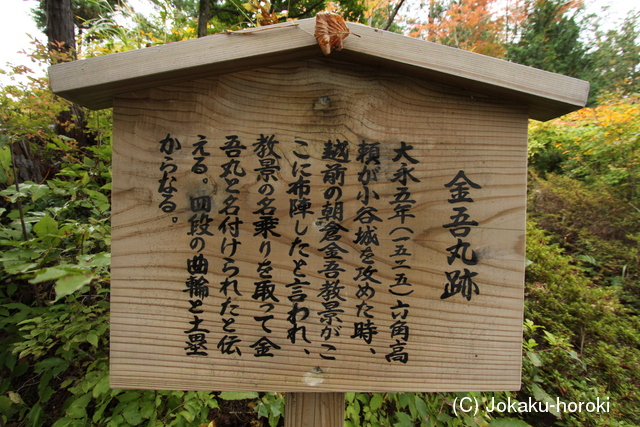 金吾丸跡
大永五年(一五二五)六角高
頼が小谷城を攻めた時、
越前の朝倉金吾教景がこ
こに布陣したと言われ、
教景の名乗りを取って金
吾丸と名付けられたと伝
える。四段の曲輪と土塁
からなる。
(C) Jokaku-horoki